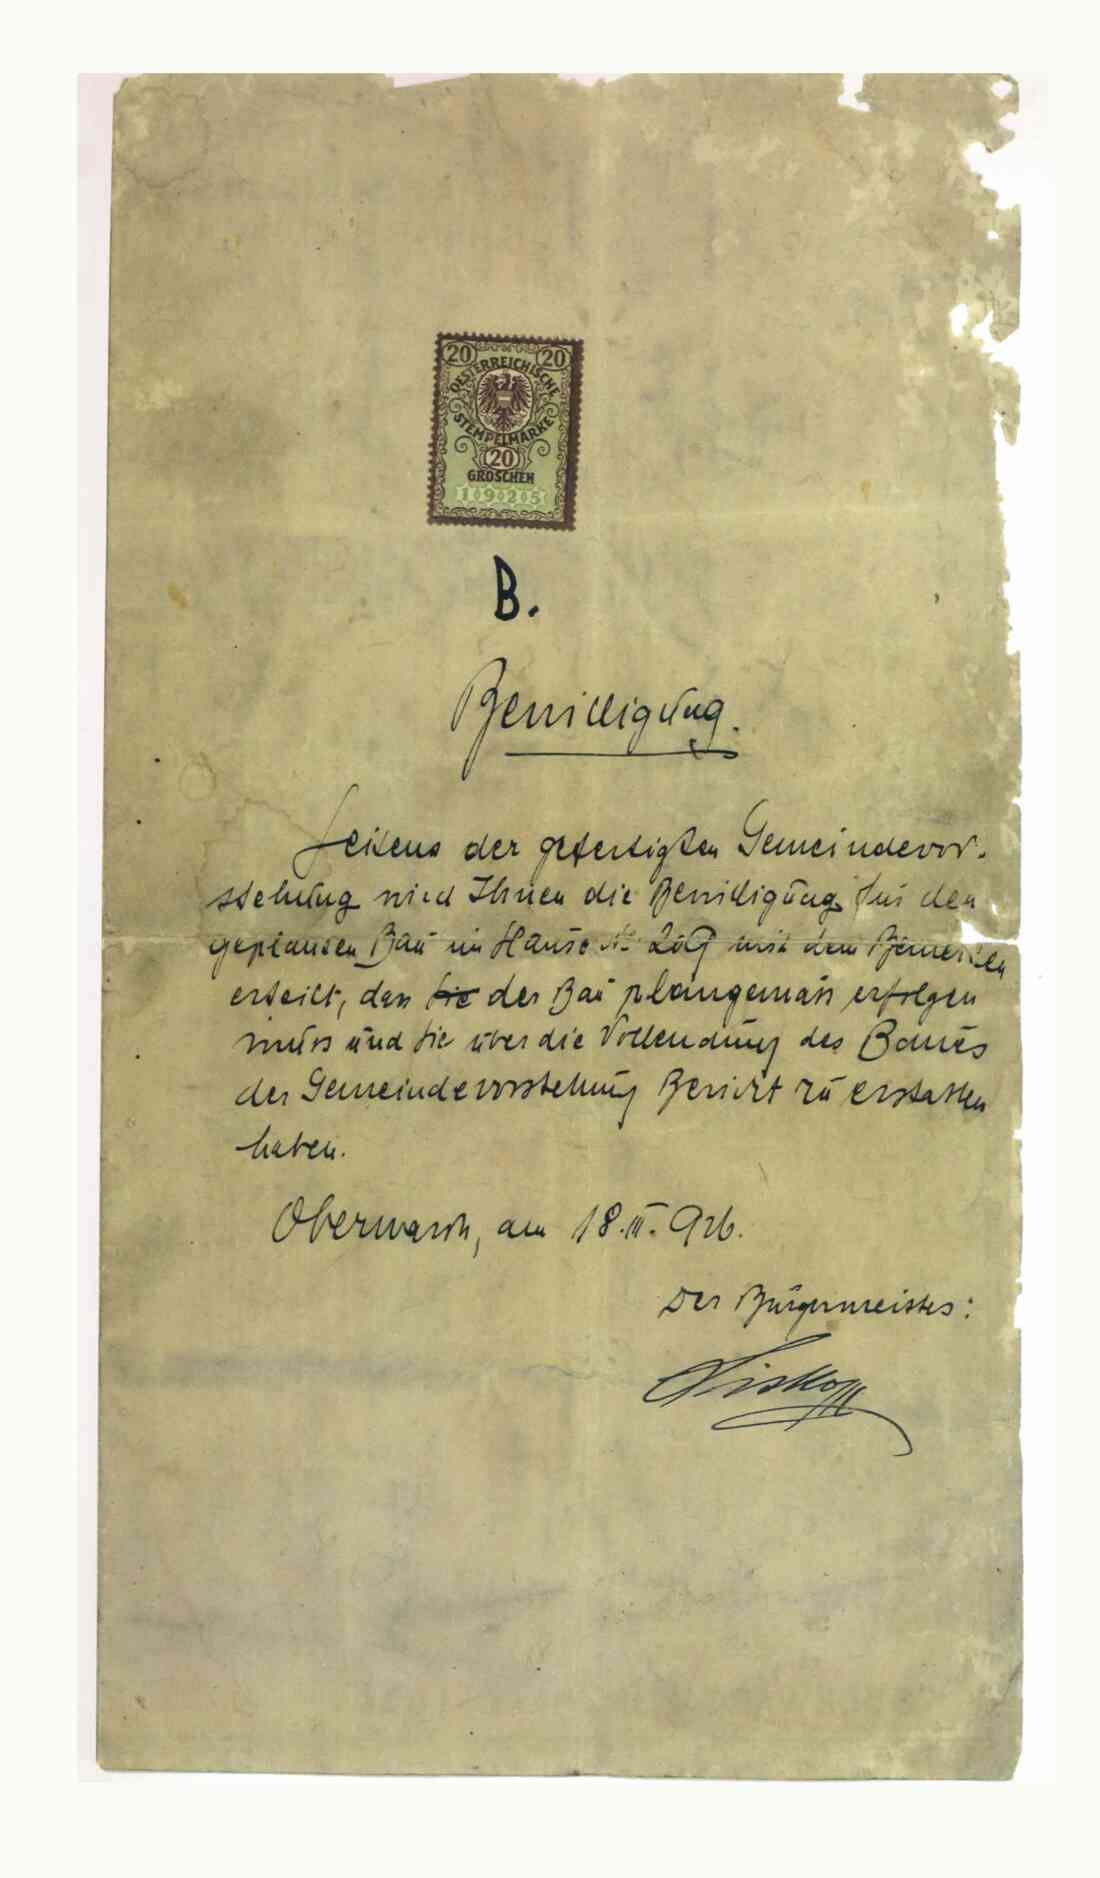 20 20
OESTERREICHISCHE
STEMPELMARKE
20
GROSCHEN
1925
B.
Bewilligung.
Seitens der gefertigten Gemeindevor-
stehung wird Ihnen die Bewilligung für den
geplanten Bau im Hause No mit dem Bemerken
erteilt, dass Sie der Bau plangemäss erfolgen
muss und Sie über die Vollendung des Baues
der Gemeindevorstehung Bericht zu erstatten
haben.
Oberwarth, am 18.III.926.
Der Bürgermeister: